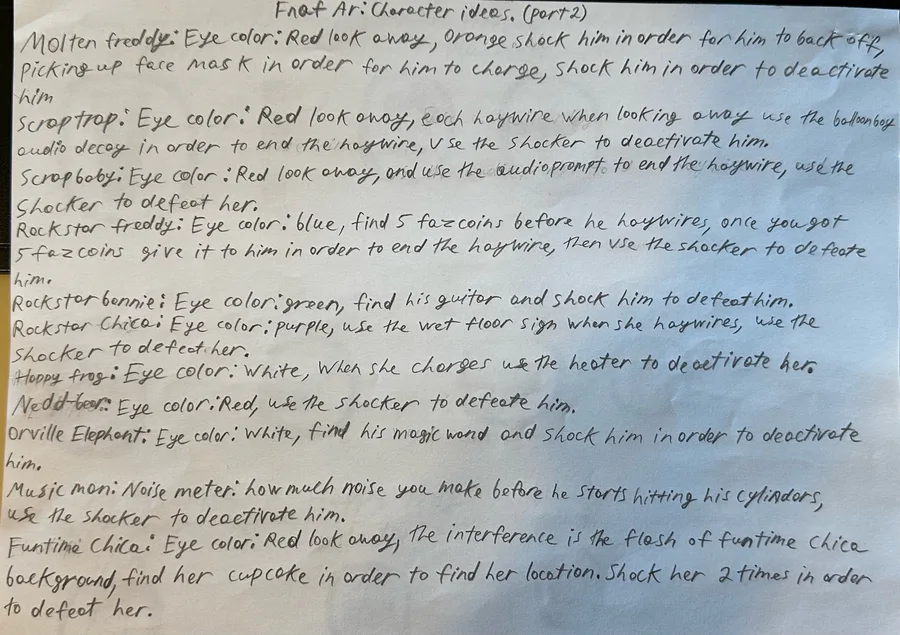 Fnaf Ar: Character ideas. (part 2)
Molten freddy: Eye color: Red look away, orange shock him in order for him to back off,
picking up face mask in order for him to charge, shock him in order to deactivate
him
Scraptrap: Eye color: Red look away, each haywire when looking away use the balloonboy
audio decoy in order to end the haywire, Use the shocker to deactivate him.
Scrapbaby: Eye color: Red look away, and use the audioprompt to end the haywire, use the
shocker to defeat her.
Rockstar freddy: Eye color: blue, find 5 fazcoins before he haywires, once you got
5 fazcoins give it to him in order to end the haywire, then use the shocker to defeate
him.
Rockstar bonnie: Eye color: green, find his guitar and shock him to defeat him.
Rockstar Chica: Eye color: purple, use the wet floor sign when she haywires, use the
shocker to defeat her.
Happy frog: Eye color: White, When she charges use the heater to deactivate her.
Nedd bear: Eye color: Red, use the shocker to defeate him.
Orville Elephant: Eye color: White, find his magic wand and shock him in order to deactivate
him.
Music man: Noise meter: how much noise you make before he starts hitting his cylindors,
use the shocker to deactivate him.
Funtime Chica: Eye color: Red look away, the interference is the flash of funtime chica
background, find her cupcake in order to find her location. Shock her 2 times in order
to defeat her.